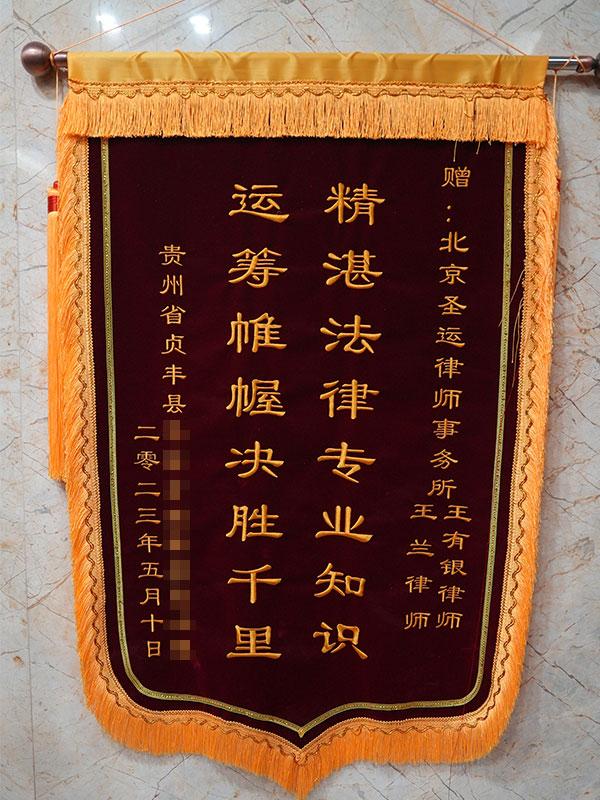 赠：北京圣运律师事务所王有银律师
王兰律师
精湛法律专业知识
运筹帷幄决胜千里
贵州省贞丰县
二零二三年五月十日